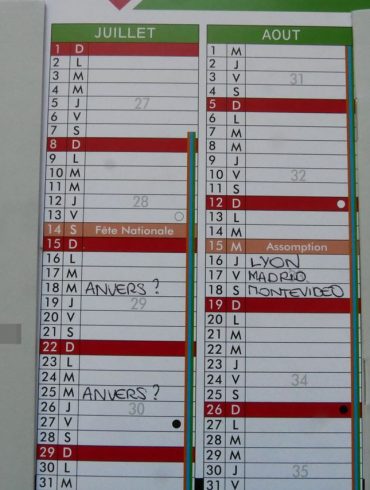 JUILLET
1 D
2 L
3 M
4 M
5 J 27
6 V
7 S
8 D
9 L
10 M
11 M
12 J 28
13 V
14 S Fête Nationale
15 D
16 L
17 M
18 M ANVERS ?
19 J 29
20 V
21 S
22 D
23 L
24 M
25 M ANVERS ?
26 J 30
27 V
28 S
29 D
30 L
31 M
AOUT
1 M
2 J
3 V 31
4 S
5 D
6 L
7 M
8 M
9 J
10 V 32
11 S
12 D
13 L
14 M
15 M Assomption
16 J LYON
17 V MADRID
18 S MONTEVIDEO
19 D
20 L
21 M
22 M
23 J
24 V 34
25 S
26 D
27 L
28 M
29 M
30 J 35
31 V